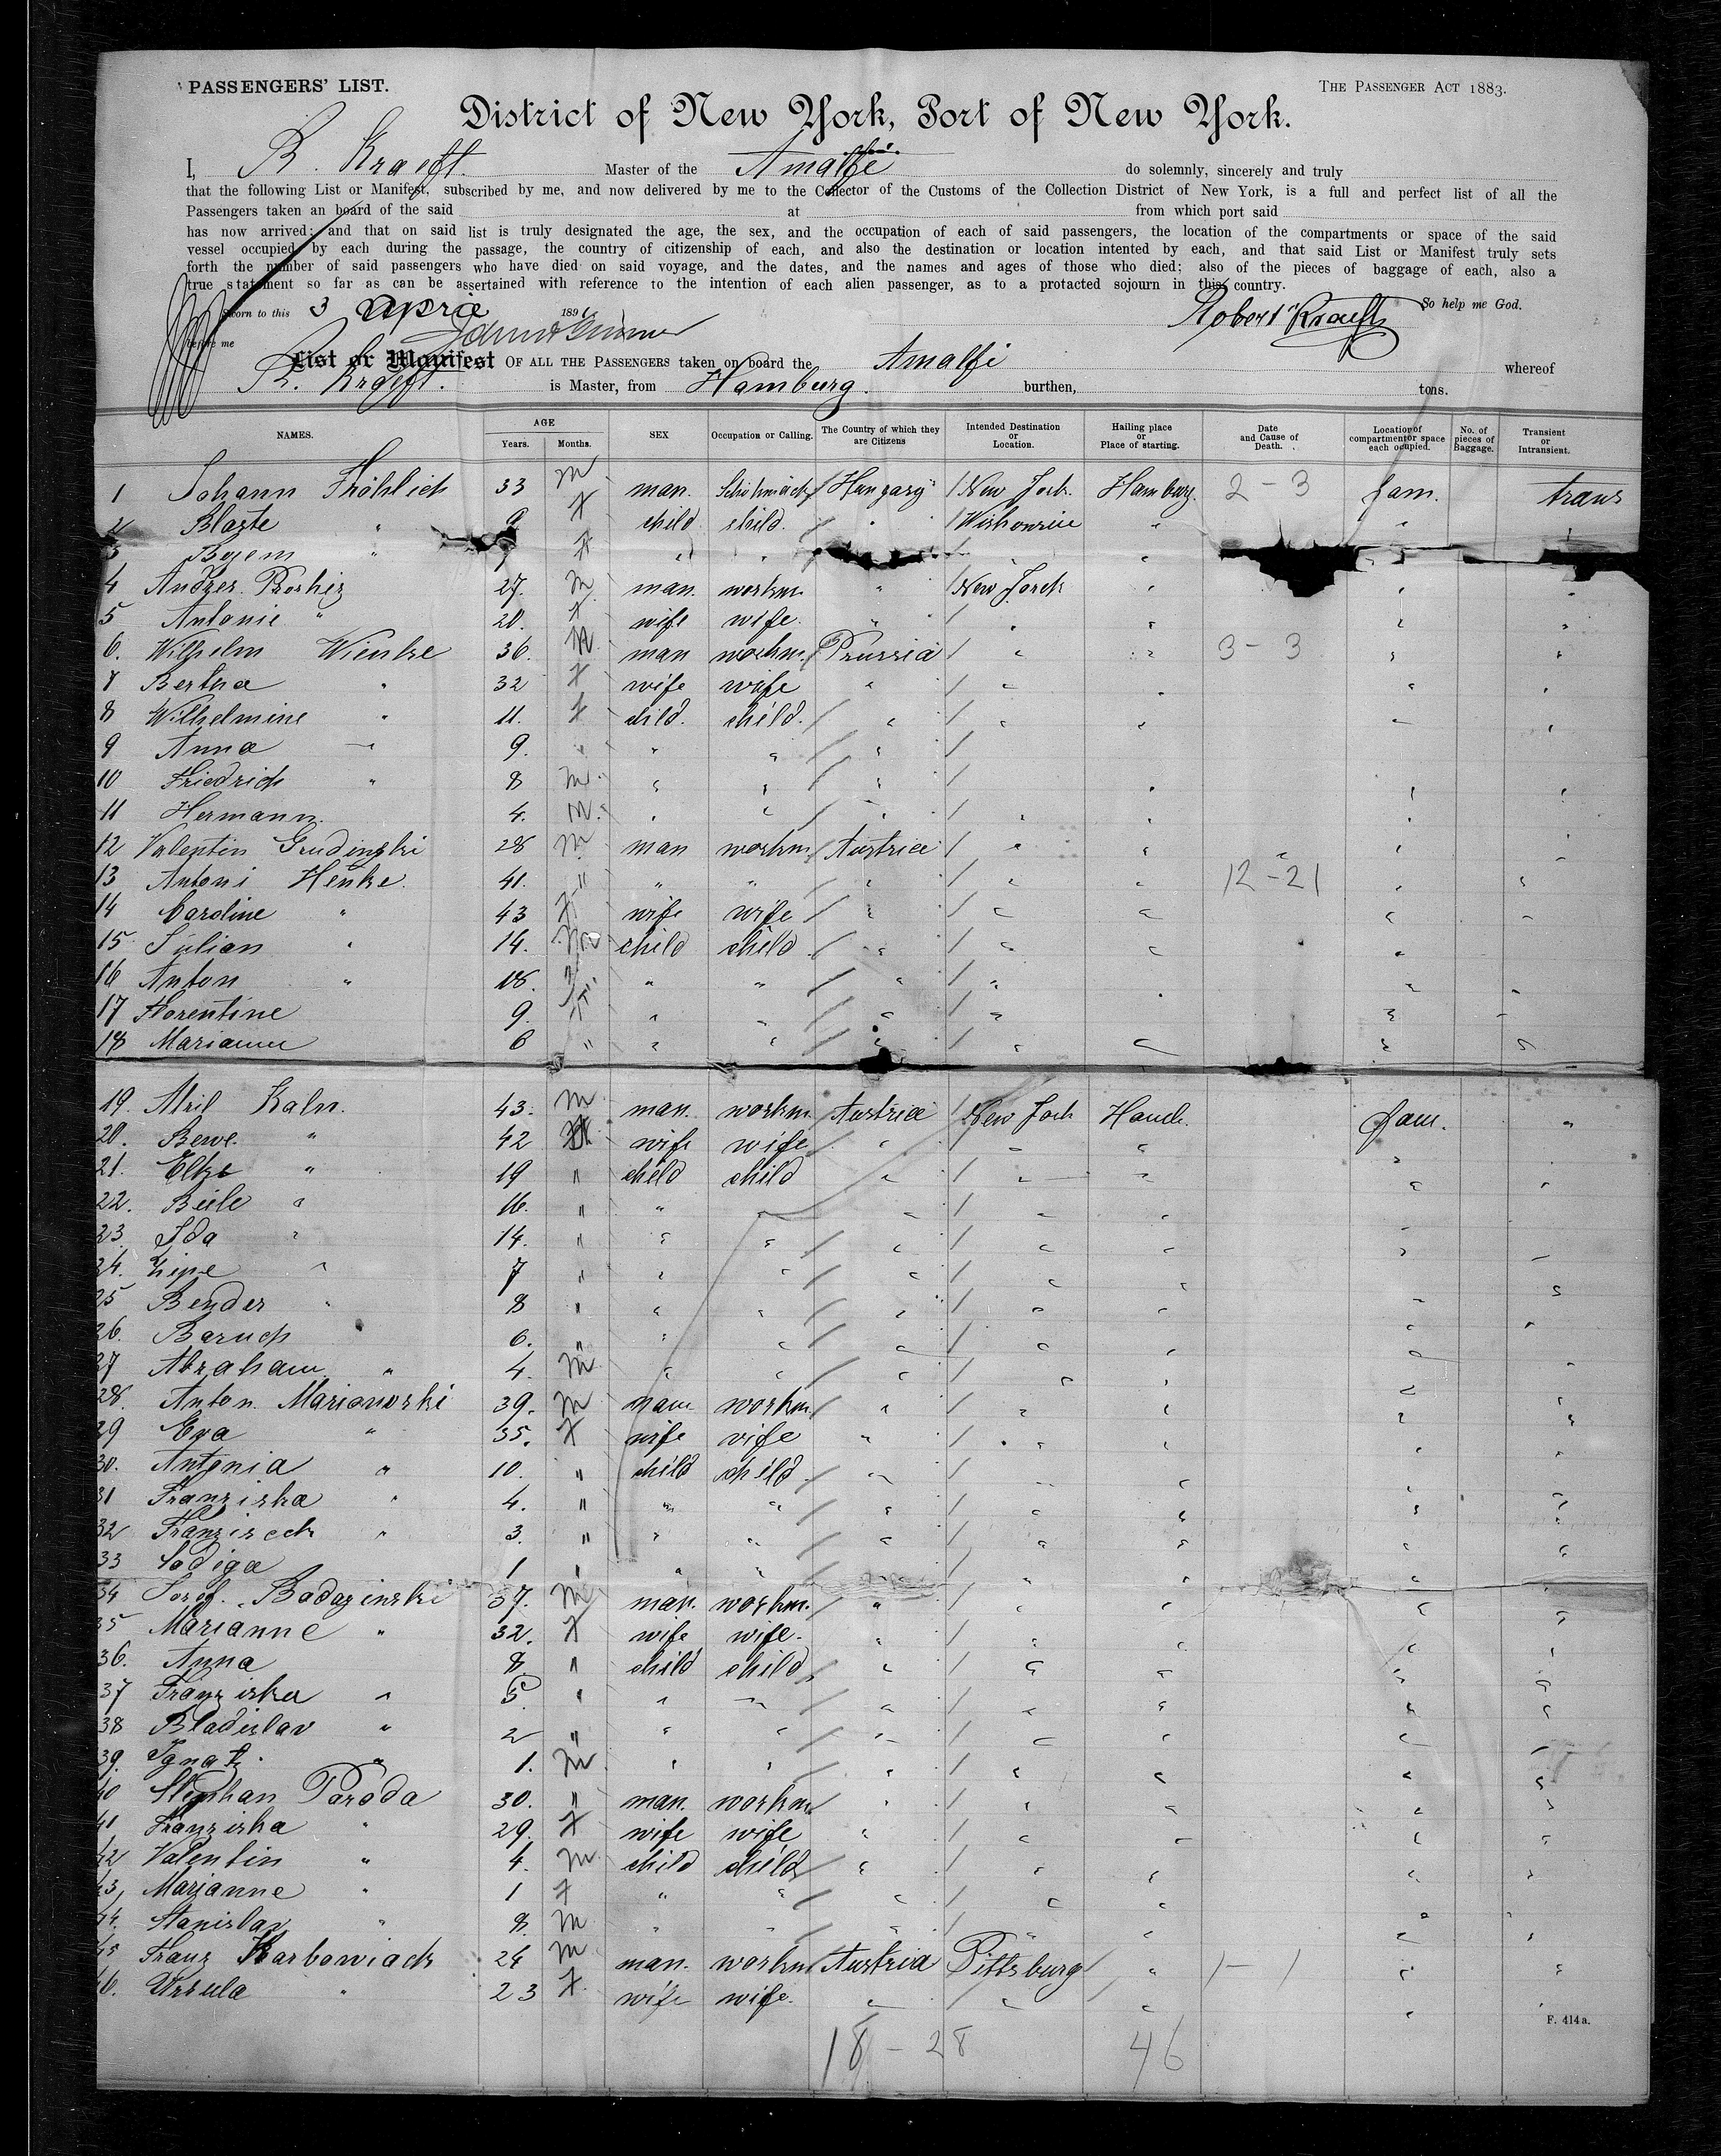 PASSENGERS' LIST.
THE PASSENGER ACT 1883.
District of New York, Port of New York.
I, R. Kraefft. Master of the Amalfi do solemnly, sincerely and truly
that the following List or Manifest, subscribed by me, and now delivered by me to the Collector of the Customs of the Collection District of New York, is a full and perfect list of all the
Passengers taken an board of the said at from which port said
has now arrived; and that on said list is truly designated the age, the sex, and the occupation of each of said passengers, the location of the compartments or space of the said
vessel occupied by each during the passage, the country of citizenship of each, and also the destination or location intented by each, and that said List or Manifest truly sets
forth the number of said passengers who have died on said voyage, and the dates, and the names and ages of those who died; also of the pieces of baggage of each, also a
true statement so far as can be assertained with reference to the intention of each alien passenger, as to a protacted sojourn in this country.
Sworn to this 3 April 1891 Robert Kraefft So help me God.
before me
List or Manifest OF ALL THE PASSENGERS taken on board the Amalfi whereof
R. Kraefft. is Master, from Hamburg. burthen, tons.
NAMES. AGE Years. Months. SEX Occupation or Calling. The Country of which they are Citizens Intended Destination or Location. Hailing place or Place of starting. Date and Cause of Death. Location of compartment or space each occupied. No. of pieces of Baggage. Transient or Intransient.
1 Johann Fröhlich 33 m man. Hungary New York. Hamburg. 2-3 fam. trans
2 " 9 F child child. " "
3 " F " " " "
4 27. m man. workm. " New Jorck "
5 Antonie " 20. F wife wife. " " "
6. Wilhelm Wienke 36. M man workm. Prussia " " 3-3 "
7 Bertha " 32 F wife wife " " " "
8 Wilhelmine " 11. F child. child. " " " "
9 Anna " 9. " " " "
10 Friedrich " 8 m. " " " " "
11 Hermann. 4. m. " " " " "
12 Valentin Grudinski 28 m man workm Austria " " "
13 Antoni Henke. 41. " " " " " " 12-21 "
14 Caroline " 43 F wife wife " " " "
15. Julian " 14. m child child " " " "
16 Anton " 18. " " " " " "
17 Florentine 9. F " " " " "
18 Marianne 6 " " " " " " "
19. Kaln. 43. m man. workm. Austria New Jork Hamb. fam. "
20. Bewe. " 42 F wife wife " " " "
21. Elke " 19 " child child " " " "
22. Beile " 16. " " " " " " "
23 Ida " 14. " " " " " " "
24. Zipe " 7 " " " " " " "
25 Bender " 8 " " " " " " "
26. Baruch 6. " " " " " " "
27 Abraham " 4. m " " " " " "
28. Anton. Marianorski 39. m man workm. " " " "
29 Eva " 35. F wife wife " " " "
30. Antonia " 10. " child child " " " "
31 Franziska " 4. " " " " " " "
32 Franziseck " 3. " " " " " " "
33 1 " " " " " " "
34 Josef. Badazinski 37. m man. workm. " " " "
35 Marianne " 32. F wife wife. " " " "
36. Anna 8. " child child " " " "
37 Franziska " 5 " " " " " " "
38 Bladislav " 2 " " " " " " "
39. Ignatz. " 1. m " " " " " "
40 Stephan Paroda 30. " man. workm. " " " "
41 Franziska " 29. F wife wife " " " "
42 Valentin " 4. m child child " " " "
43, Marianne " 1 F " " " " " "
44. Stanislav " 8. m " " " " " "
45 Franz Karbowiack 24 m man. workm Austria Pittsburg " 1-1 "
46. Ursula " 23 F wife wife. " " " "
F. 414a.
18-28 46